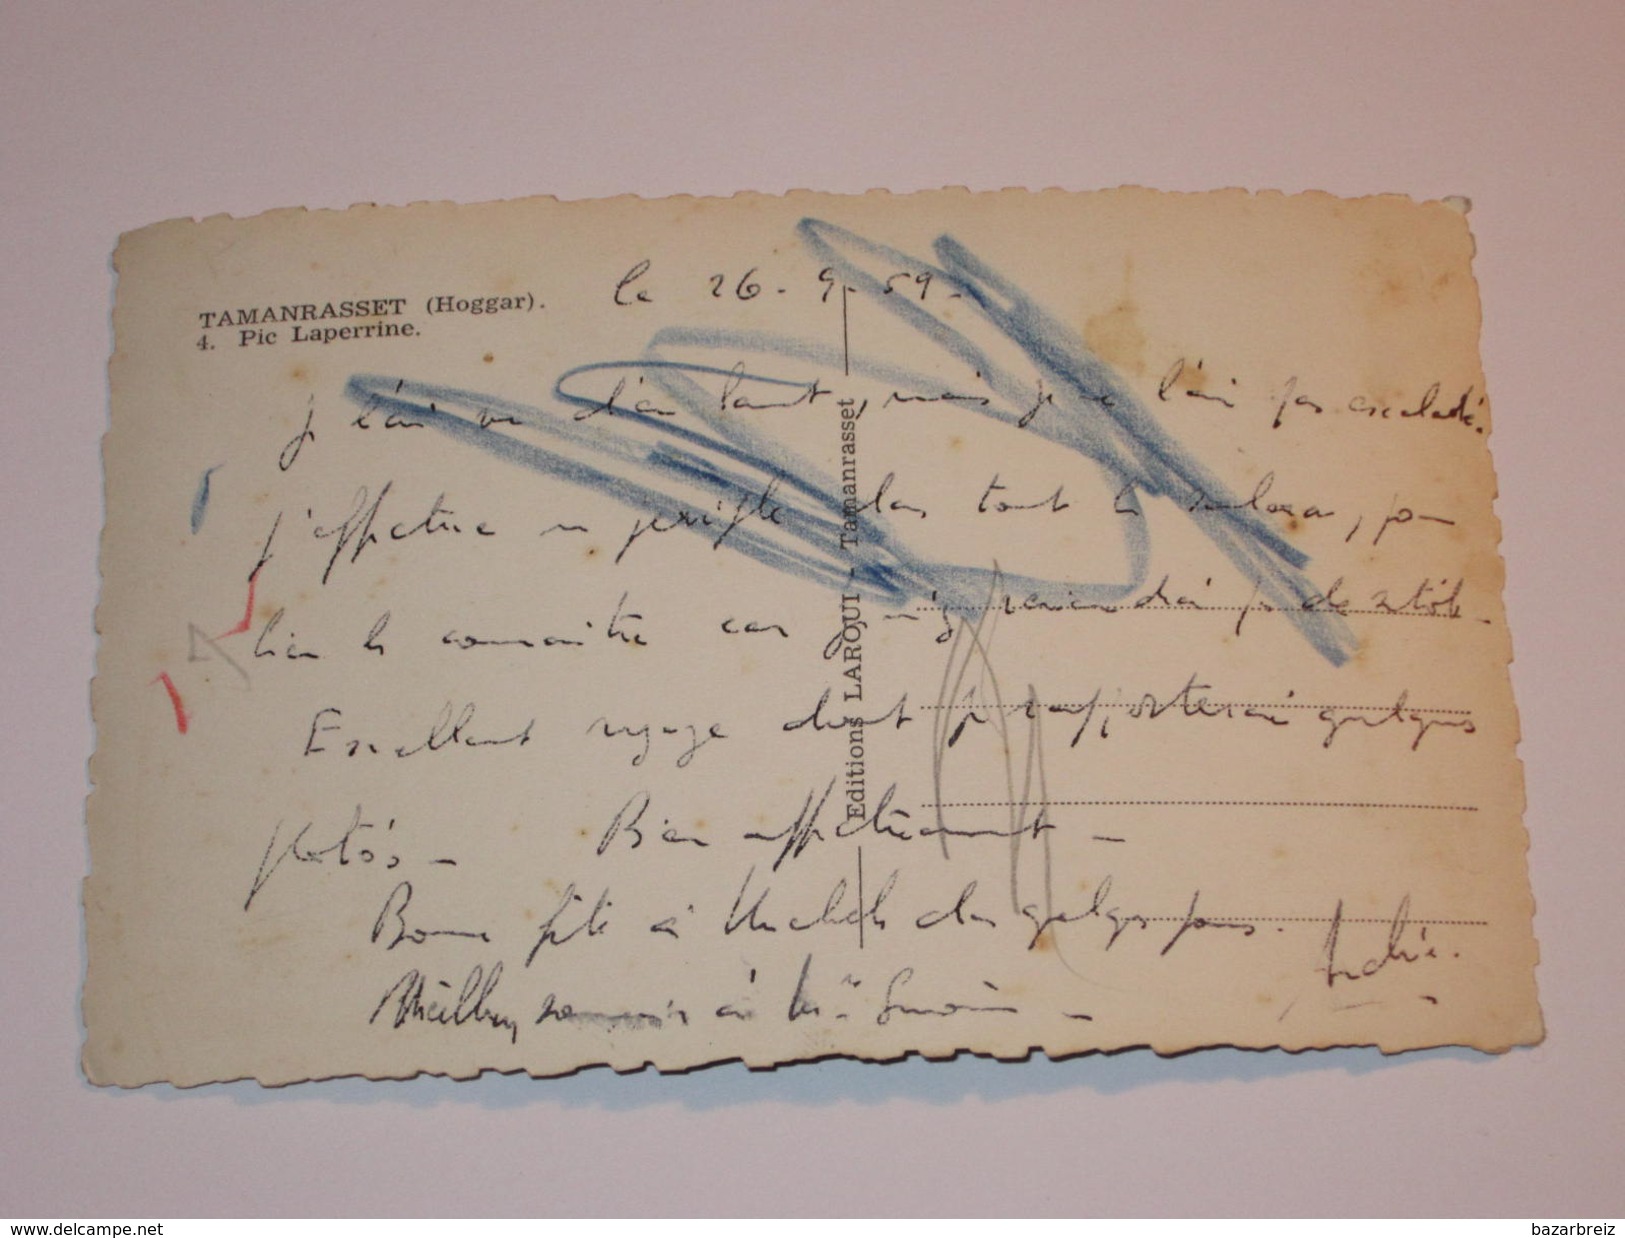 TAMANRASSET (Hoggar).
4. Pic Laperrine.
le 26-9-59-
je l'ai vu d'en haut, mais je ne l'ai pas escaladé.
J'effectue un périple dans tout le sahara, pour
bien le connaître car je n'y reviendrai pas de sitôt-
Excellent voyage dont je rapporterai quelques
photos- Bien affectueusement-
Bonne fête à dans quelques jours.
Meilleur souvenir à Mr
André.
Editions LAROUI - Tamanrasset
www.delcampe.net
bazarbreiz